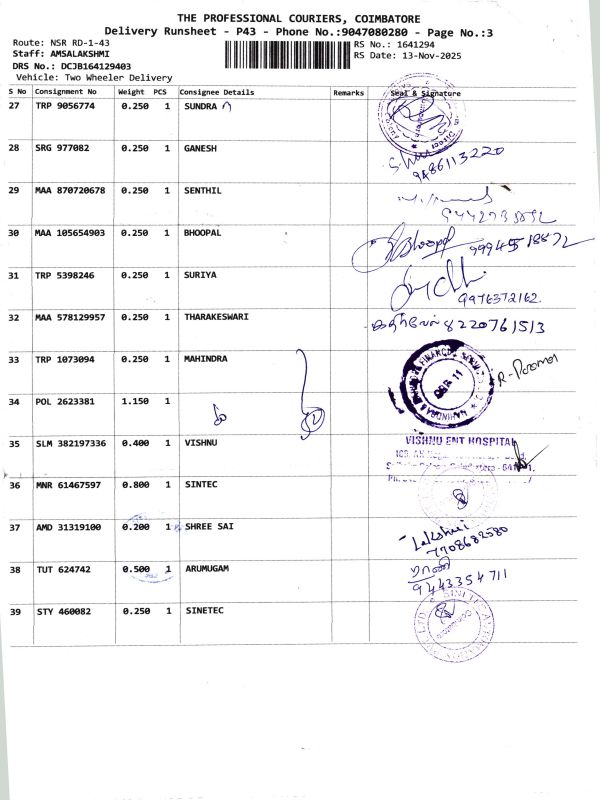 THE PROFESSIONAL COURIERS, COIMBATORE
Delivery Runsheet - P43 - Phone No.:9047080280 - Page No.:3
Route: NSR RD-1-43
Staff: AMSALAKSHMI
DRS No.: DCJB164129403
Vehicle: Two Wheeler Delivery
RS No.: 1641294
RS Date: 13-Nov-2025
S No Consignment No Weight PCS Consignee Details Remarks Seal & Signature
27 TRP 9056774 0.250 1 SUNDRA
28 SRG 977082 0.250 1 GANESH
9486113220
29 MAA 870720678 0.250 1 SENTHIL
30 MAA 105654903 0.250 1 BHOOPAL Bhoopal
31 TRP 5398246 0.250 1 SURIYA
9976372162
32 MAA 578129957 0.250 1 THARAKESWARI 8220761513
33 TRP 1073094 0.250 1 MAHINDRA
34 POL 2623381 1.150 1
35 SLM 382197336 0.400 1 VISHNU VISHNU ENT HOSPITAL
36 MNR 61467597 0.800 1 SINTEC
37 AMD 31319100 0.200 1 SHREE SAI Lakshmi
7708682580
38 TUT 624742 0.500 1 ARUMUGAM ராணி
9443354711
39 STY 460082 0.250 1 SINETEC